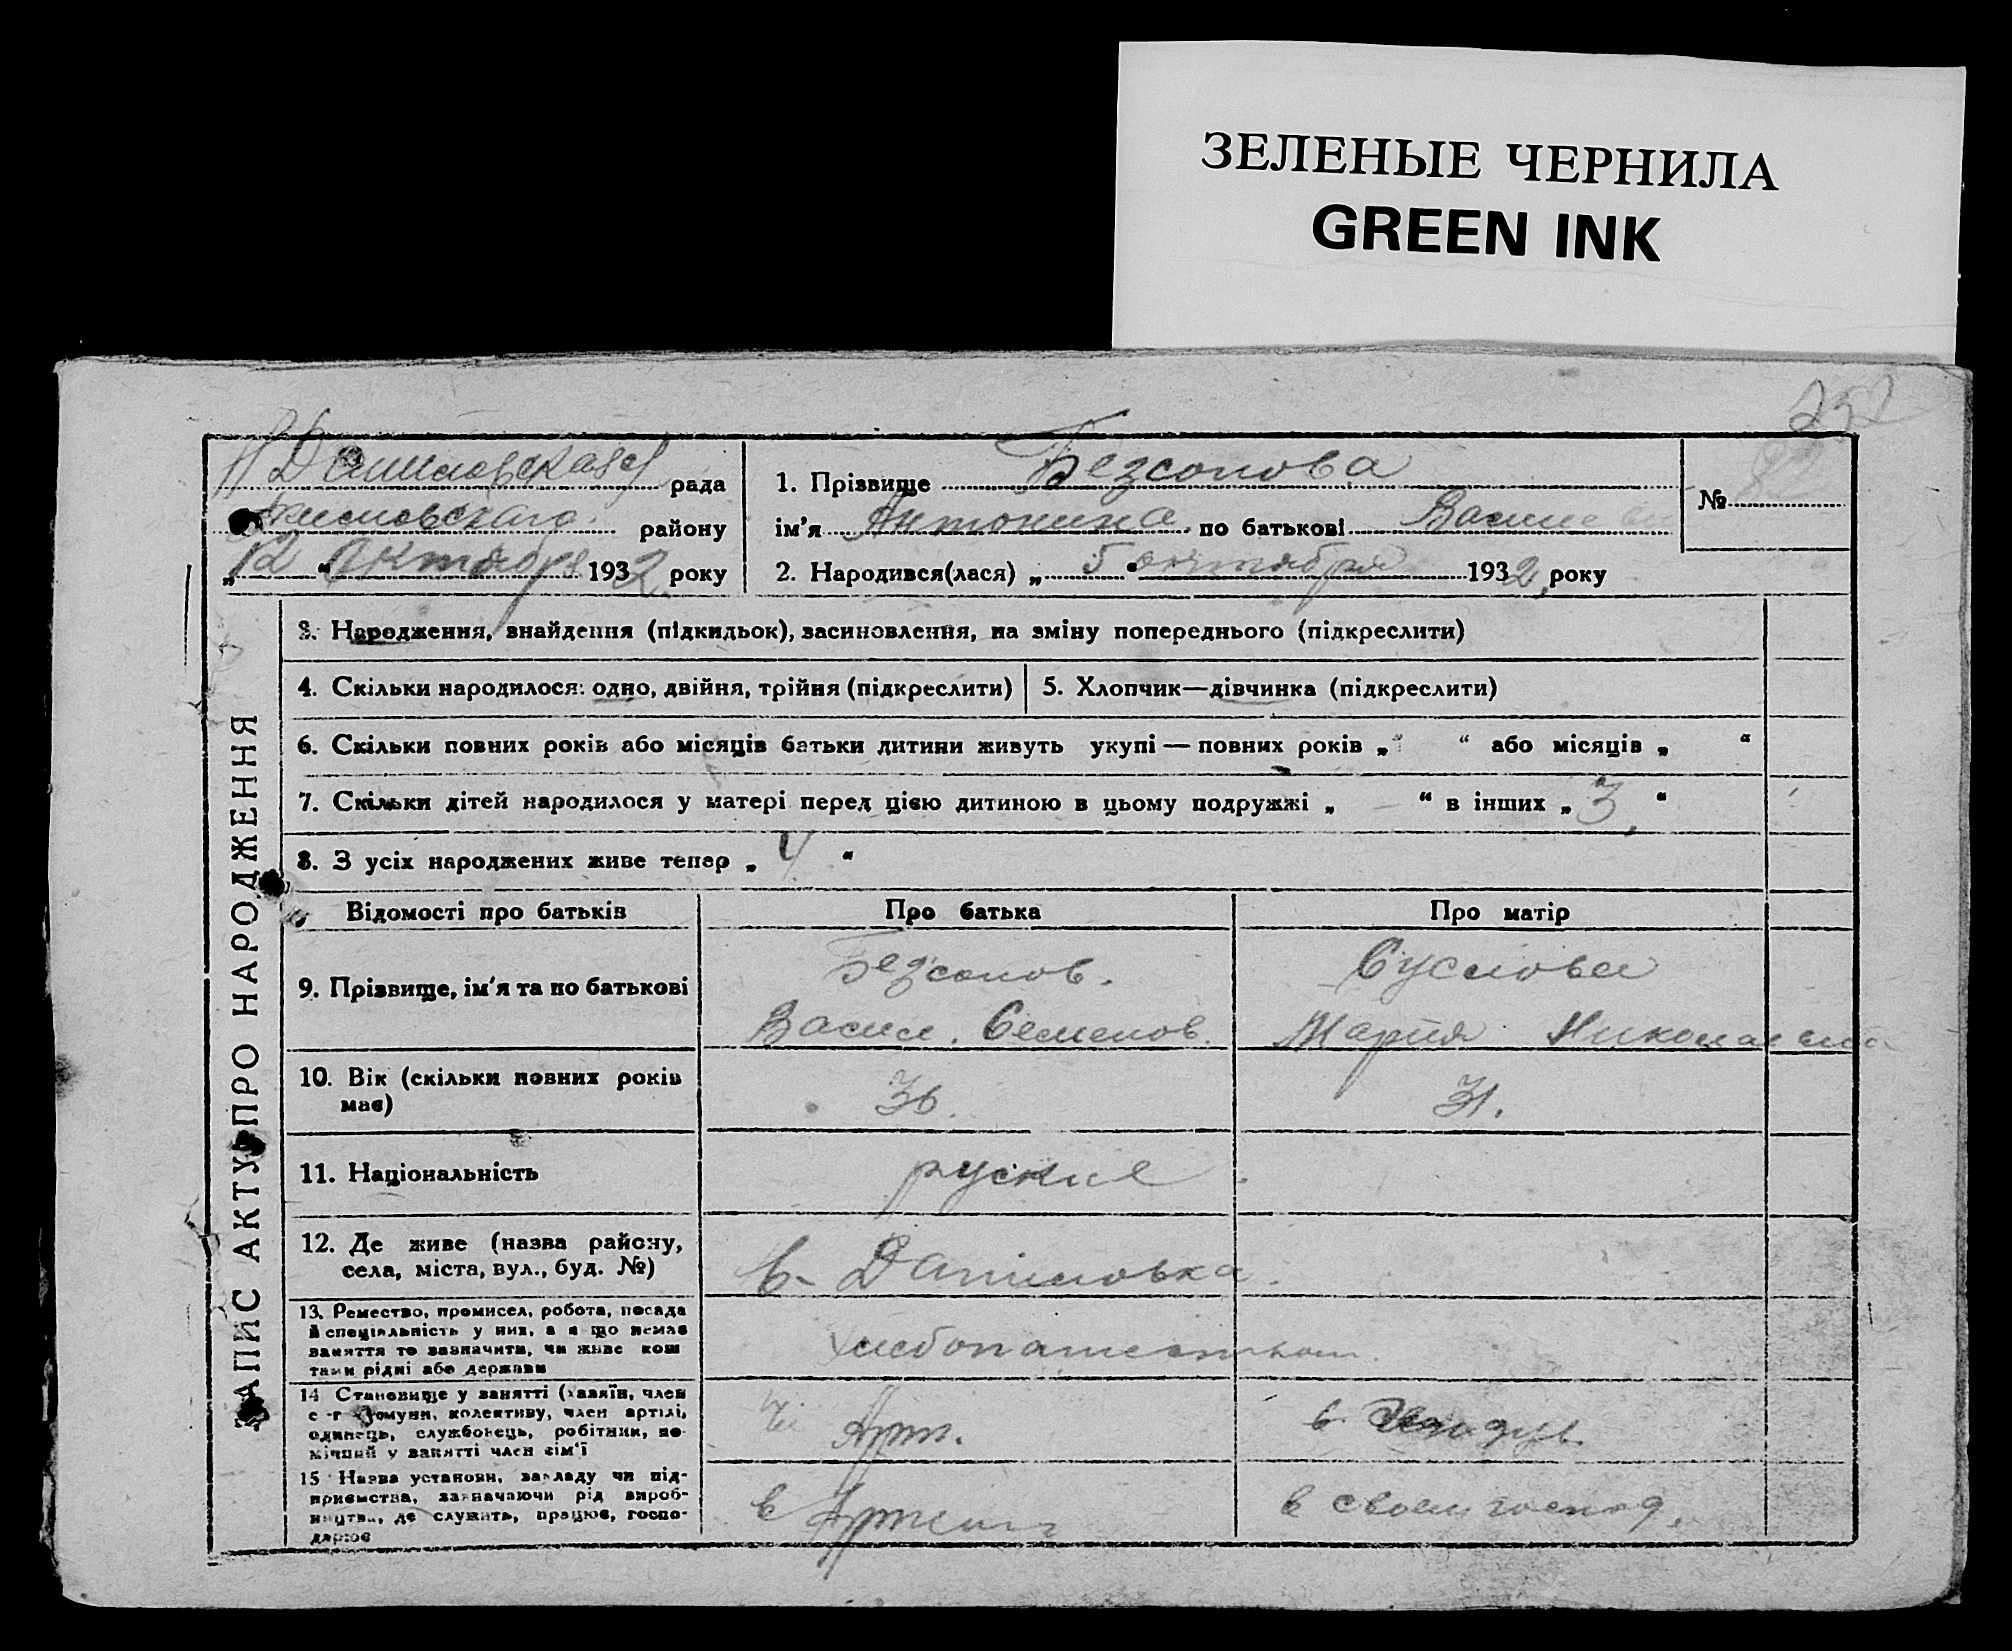 ЗЕЛЕНЫЕ ЧЕРНИЛА
GREEN INK
252
рада
району
12 Октября 1932 року
1. Прізвище Безсонова
ім'я Антонина по батькові Василев
2. Народився(лася) „5“ октября 1932 року
№
ЗАПИС АКТУ ПРО НАРОДЖЕННЯ
3. Народження, знайдення (підкидьок), засиновлення, на зміну попереднього (підкреслити)
4. Скільки народилося: одно, двійня, трійня (підкреслити)
5. Хлопчик—дівчинка (підкреслити)
6. Скільки повних років або місяців батьки дитини живуть укупі — повних років „ “ або місяців „ “
7. Скільки дітей народилося у матері перед цією дитиною в цьому подружжі „ – “ в інших „ 3 “
8. З усіх народжених живе тепер „ 4 “
Відомості про батьків Про батька Про матір
9. Прізвище, ім'я та по батькові
Безсонов.
Васил. Семенов.
Суслова
Мария Николаевна
10. Вік (скільки повних років
має)
36.
31.
11. Національність
руские
12. Де живе (назва району,
села, міста, вул., буд. №)
с. Даниловка.
13. Ремество, промисел, робота, посада
й спеціяльність у них, а якщо немає
заняття то зазначити, чи живе кош
тами рідні або держави
14 Становище у занятті (хазяїн, член
с-г комуни, колективу, член артілі,
одинець, службовець, робітник, по-
мічний у занятті член сім'ї
Арт.
15 Назва установи, закладу чи під-
приємства, зазначаючи рід вироб-
ництва, де служить, працює, госпо-
дарює
в Артели
в своем господ.